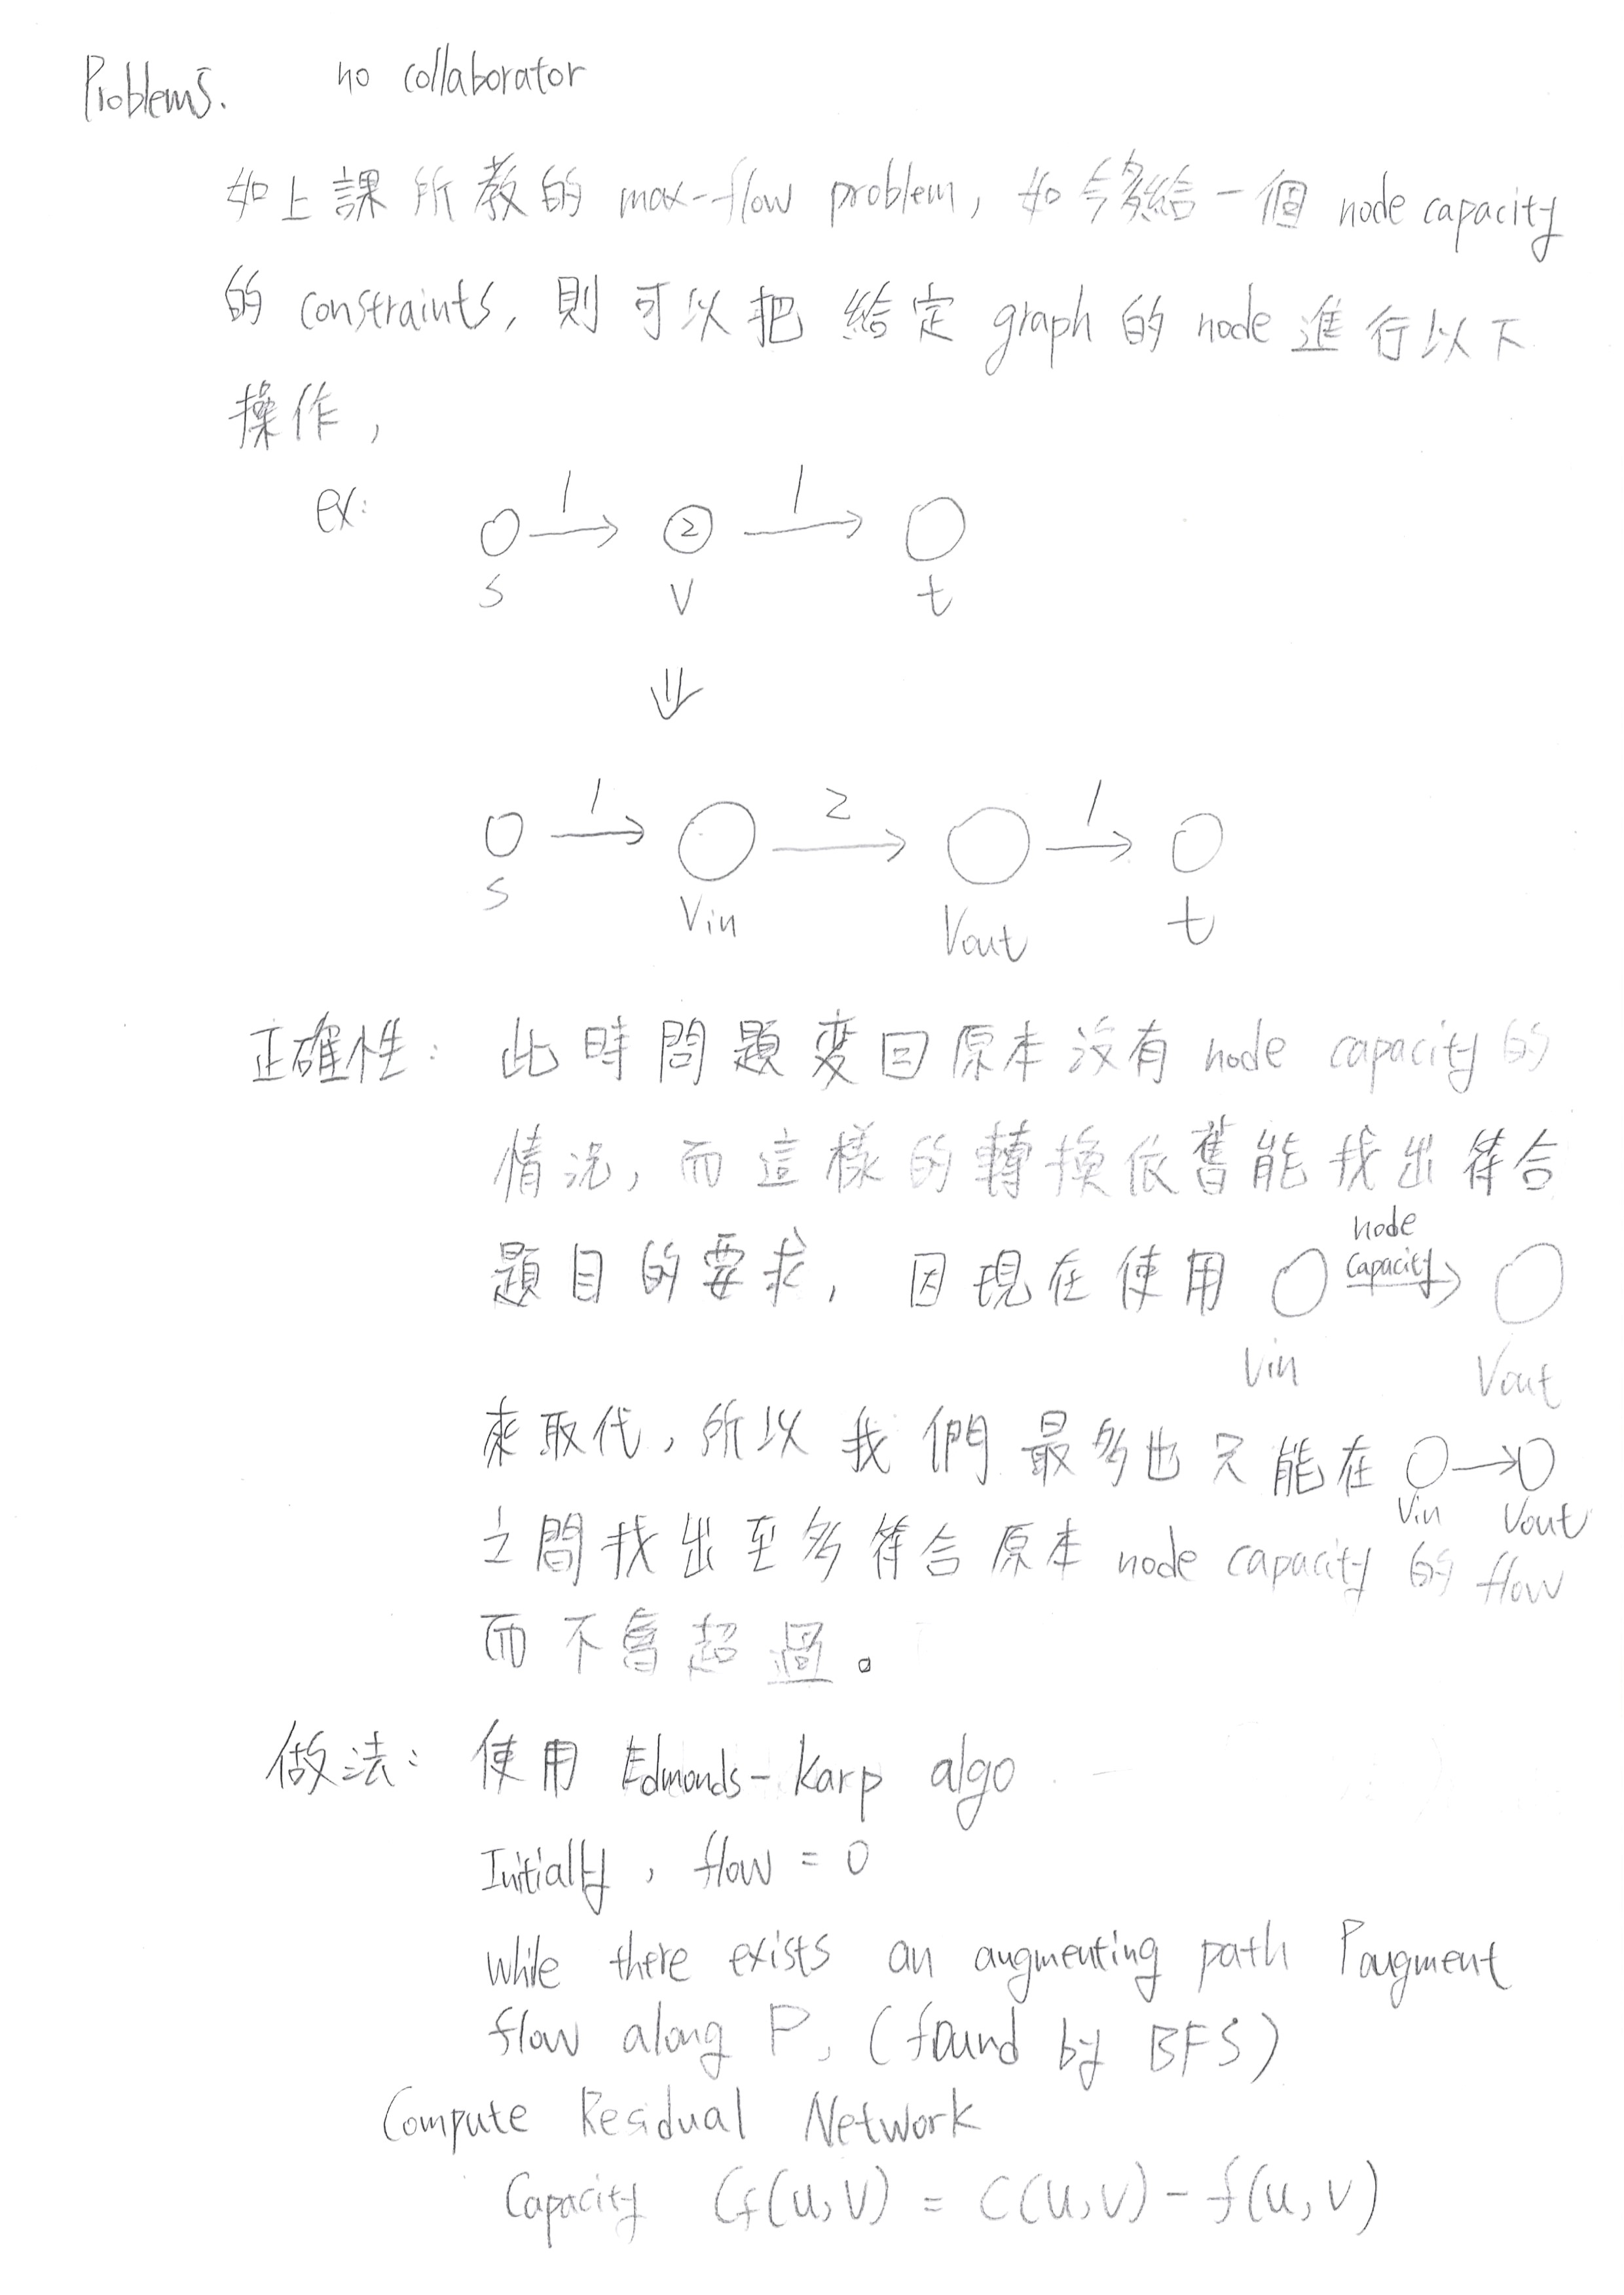 Problem5. no collaborator
如上課所教的 max-flow problem, 如今多給一個 node capacity
的 constraints, 則可以把給定 graph 的 node 進行以下
操作,
ex: 1 2 1
s v t
⇓
1 2 1
s Vin Vout t
正確性: 此時問題變回原本沒有 node capacity 的
情況, 而這樣的轉換依舊能找出符合
題目的要求, 因現在使用 node capacity
Vin Vout
來取代, 所以我們最多也只能在
Vin Vout
之間找出至多符合原本 node capacity 的 flow
而不會超過。
做法: 使用 Edmonds-Karp algo
Initially, flow = 0
while there exists an augmenting path P augment
flow along P, (found by BFS)
Compute Residual Network
Capacity Cf(u,v) = C(u,v) - f(u,v)